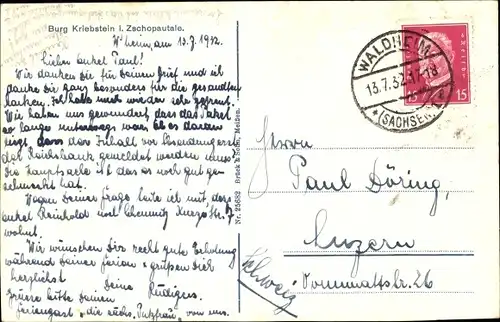 Burg Kriebstein i. Zschopautale.
W'heim, am 13.7.1932.
Lieber Onkel Paul!
Wir danken dir für Deinen Brief und ich
danke dir ganz besonders für die gesandten
Marken. Ich habe mich sehr gefreut.
Wir haben uns gewundert dass das Paket
so lange unterwegs war. Es
liegt dass der Inhalt vor
der Reichsbank gemeldet werden muss.
Die Hauptsache ist das es noch gut ge-
schmeckt hat.
Wegen Deiner Frage teile ich mit, dass
Onkel Reinhold in Chemnitz 7
wohnt.
Wir wünschen Dir recht gute Erholung
während Deiner Ferien u. grüssen Dich
herzlichst
Deine
Rüdigers.
Grüsse bitte Deinen
Feriengast "die Putzfrau" von uns.
Nr. 25682 Brück & Sohn, Meißen.
WALDHEIM
13.7.32.17-18
* (SACHSEN)
15 15
Herrn
Paul Döring,
Luzern
Schweiz
Dornmattstr. 26